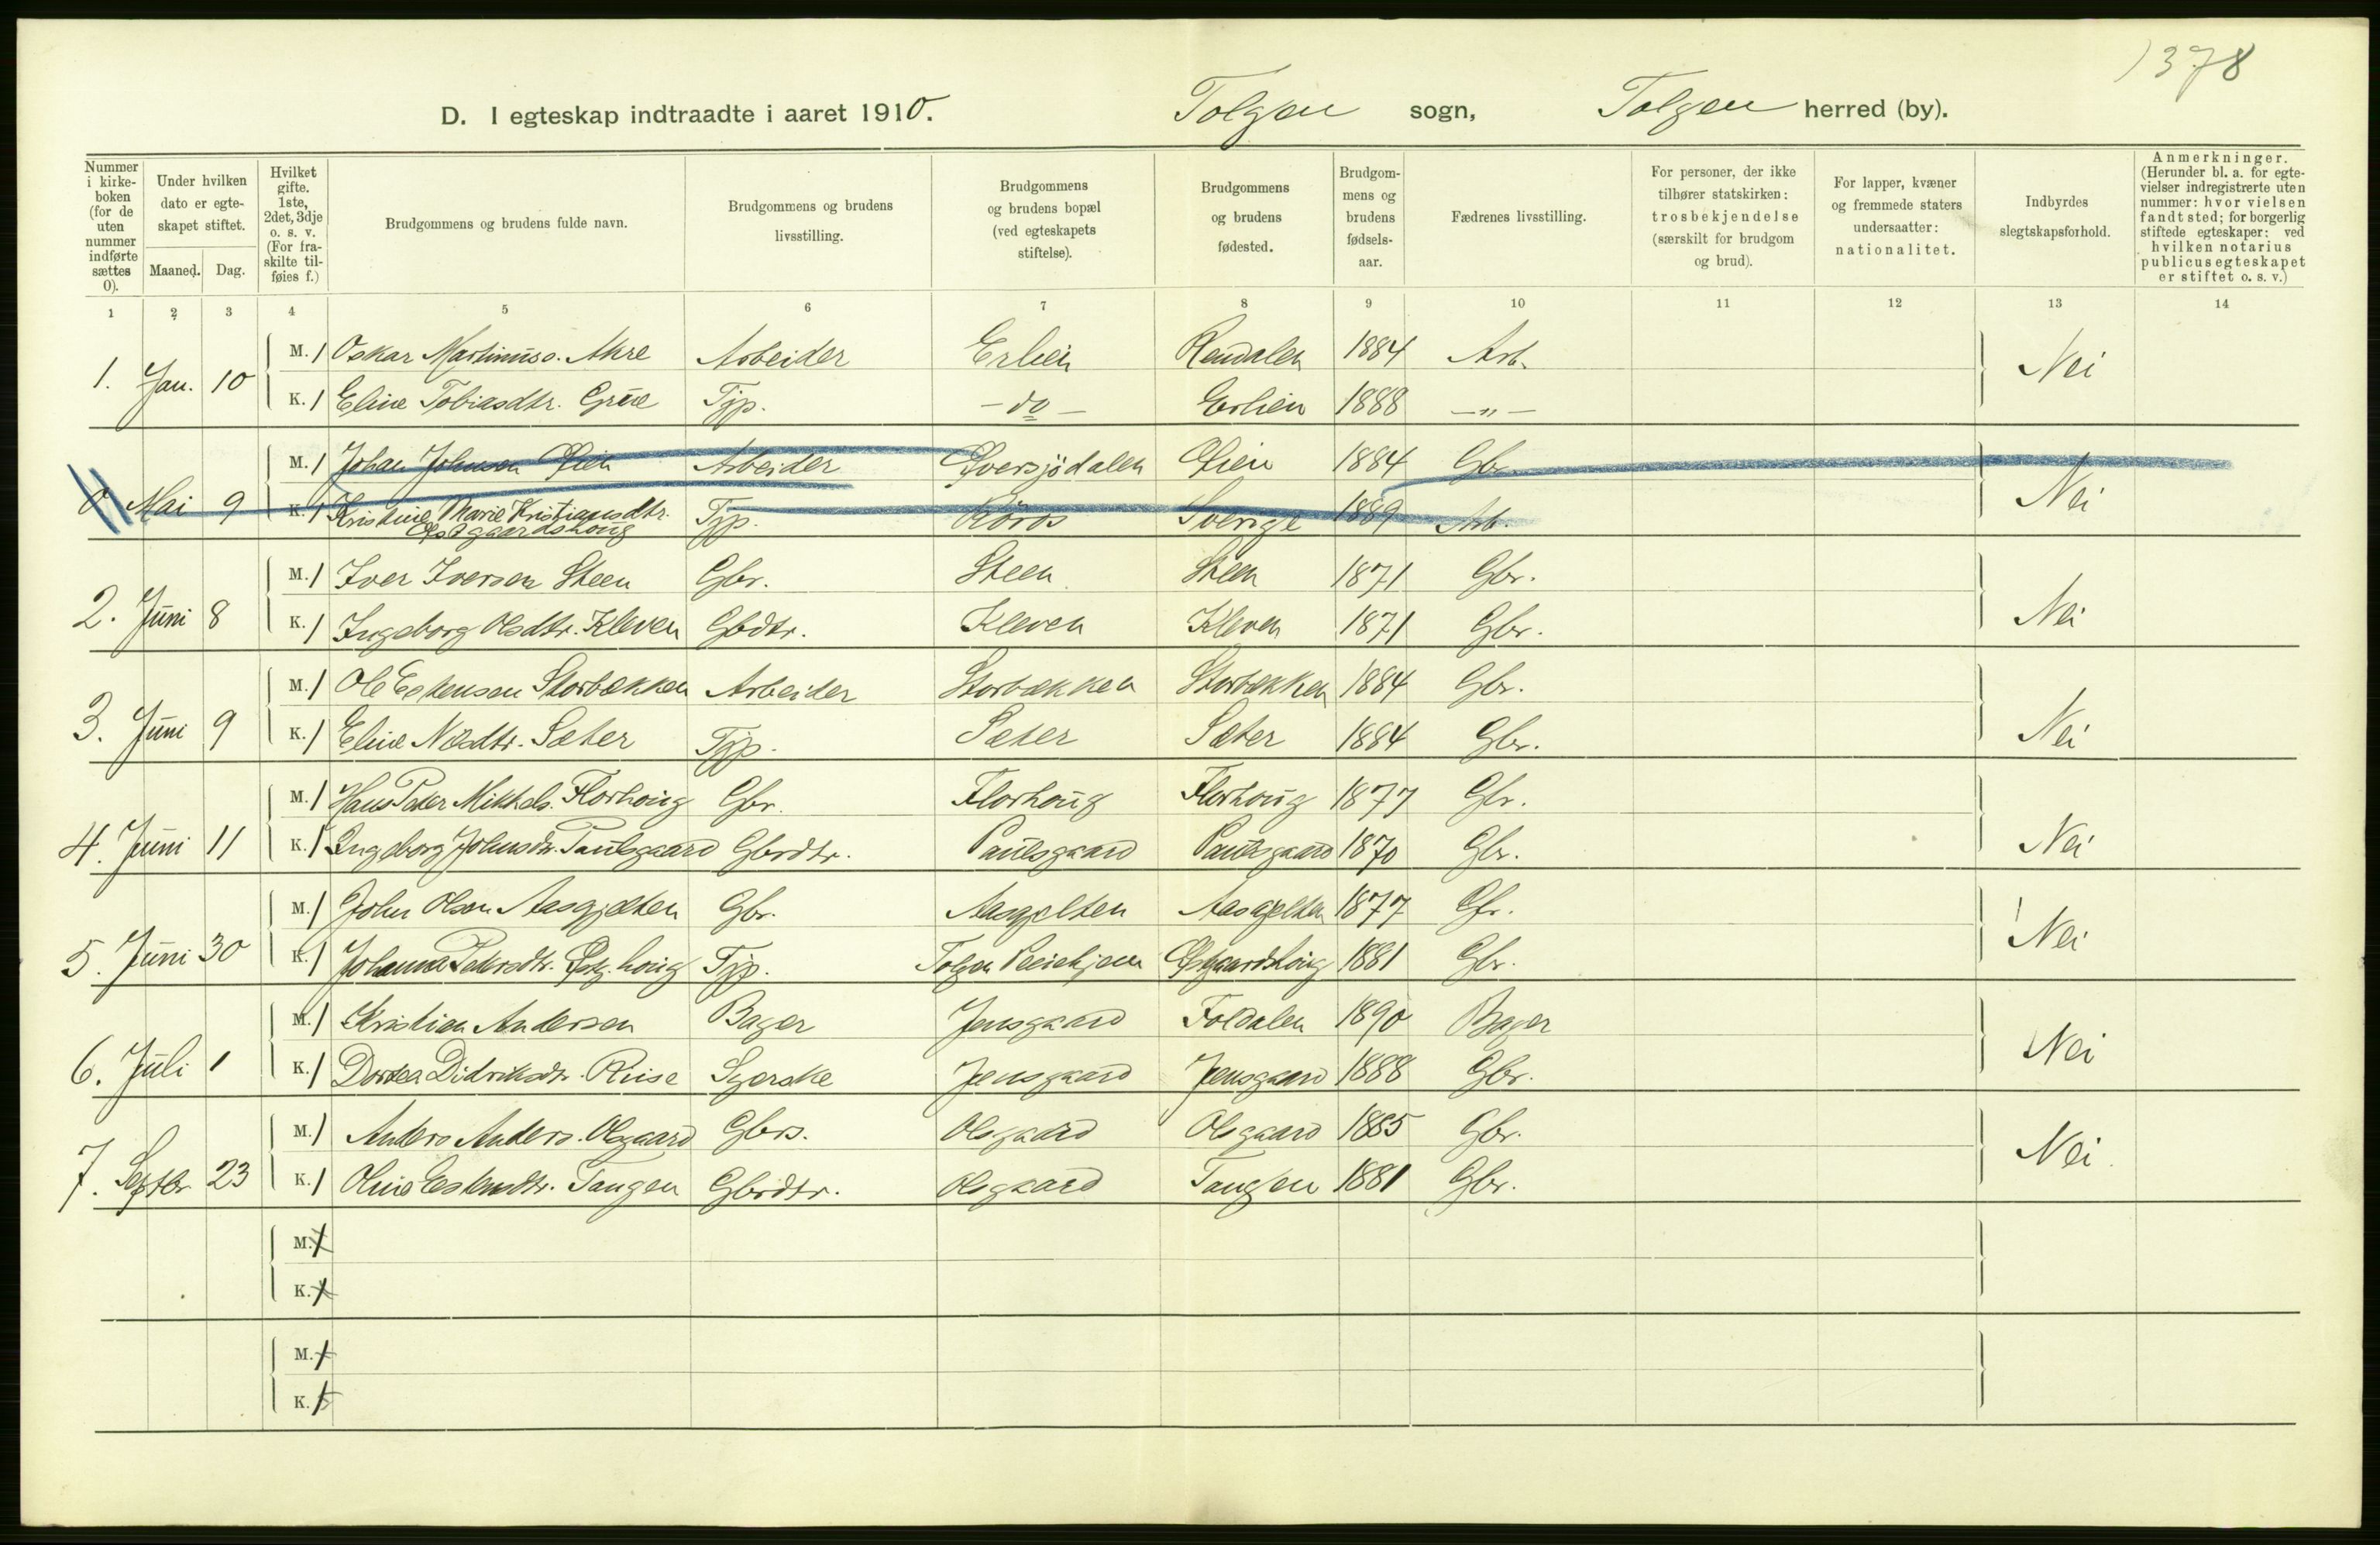 1378
D. I egteskap indtraadte i aaret 1910. Tolgen sogn, Tolgen herred (by).
Nummer i kirke-boken (for de uten nummer indførte sættes 0).
Under hvilken dato er egte-skapet stiftet.
Maaned. Dag.
Hvilket gifte. 1ste, 2det, 3dje o. s. v. (For fra-skilte til-føies f.)
Brudgommens og brudens fulde navn.
Brudgommens og brudens livsstilling.
Brudgommens og brudens bopæl (ved egteskapets stiftelse).
Brudgommens og brudens fødested.
Brudgom-mens og brudens fødsels-aar.
Fædrenes livsstilling.
For personer, der ikke tilhører statskirken: trosbekjendelse (særskilt for brudgom og brud).
For lapper, kvæner og fremmede staters undersaatter: nationalitet.
Indbyrdes slegtskapsforhold.
Anmerkninger. (Herunder bl. a. for egte-vielser indregistrerte uten nummer: hvor vielsen fandt sted; for borgerlig stiftede egteskaper: ved hvilken notarius publicus egteskapet er stiftet o. s. v.)
1 2 3 4 5 6 7 8 9 10 11 12 13 14
M. 1 Oskar Martinuss. Akre Arbeider Erlien Rendalen 1884 Arb.
1. Jan. 10 Nei
K. 1 Eline Tobiasdtr. Grue Tjp. – do – Erlien 1888 – " –
M. 1 Johan Johnsen Øien Arbeider Tversjødalen Øien 1884 Gbr.
0 Mai 9 Nei
K. 1 Kristine Marie Kristiansdtr. Østgaardshoug Tjp. Röros Sverige 1889 Arb.
M. 1 Iver Iversen Steen Gbr. Steen Steen 1871 Gbr.
2. Juni 8 Nei
K. 1 Ingeborg Olsdtr. Kleven Gbdtr. Kleven Kleven 1871 Gbr.
M. 1 Ole Estensen Storbækken Arbeider Storbækken Storbækken 1884 Gbr.
3. Juni 9 Nei
K. 1 Eline Nilsdtr. Sæter Tjp. Sæter Sæter 1884 Gbr.
M. 1 Hans Peter Mikkels. Florhoug Gbr. Florhoug Florhoug 1877 Gbr.
4. Juni 11 Nei
K. 1 Ingeborg Johnsdtr. Paulsgaard Gbrdtr. Paulsgaard Paulsgaard 1870 Gbr.
M. 1 John Olsen Aasgjelten Gbr. Aasgjelten Aasgjelten 1877 Gbr.
5. Juni 30 Nei
K. 1 Johanna Pedersdtr. Østg.houg Tjp. Tolgen Østgaardshoug 1881 Gbr.
M. 1 Kristian Andersen Bager Jensgaard Foldalen 1890 Bager
6. Juli 1 Nei
K. 1 Dortea Didriksdtr. Riise Syerske Jensgaard Jensgaard 1888 Gbr.
M. 1 Anders Anders. Olsgaard Gbrs. Olsgaard Olsgaard 1885 Gbr.
7. Septbr. 23 Nei
K. 1 Oline Estensdtr. Tangen Gbrdtr. Olsgaard Tangen 1881 Gbr.
M. 1
K. 1
M. 1
K. 1